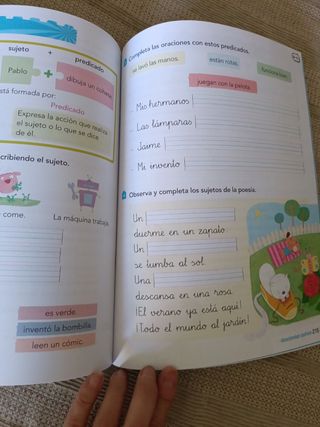 sujeto + predicado
Pablo + dibuja un cohete.
está formada por:
Predicado
Expresa la acción que realiza
el sujeto o lo que se dice
de él.
cribiendo el sujeto.
come. La máquina trabaja.
es verde.
inventó la bombilla.
leen un cómic.
Completa las oraciones con estos predicados.
se lavó las manos. están rotas. funciona bien.
juegan con la pelota.
Mis hermanos
Las lámparas
Jaime
Mi invento
Observa y completa los sujetos de la poesía.
Un
duerme en un zapato.
Un
se tumba al sol.
Una
descansa en una rosa.
¡El verano ya está aquí!
¡Todo el mundo al jardín!